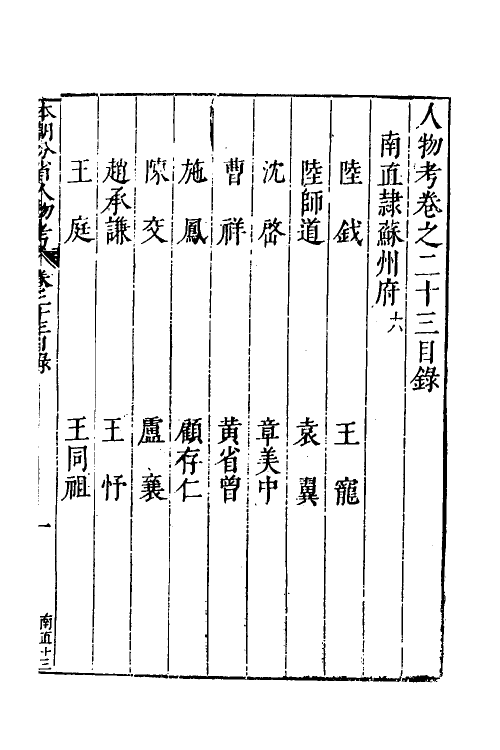 人物考卷之二十三目錄
南直隷蘇州府六
陸鉞　王寵
陸師道　袁翼
沈啓　章美中
曹祥　黃省曾
施鳳　顧存仁
陳交　盧襄
趙承謙　王忬
王庭　王同祖
本朝分省人物考　卷之二十三目錄　一　南直十三